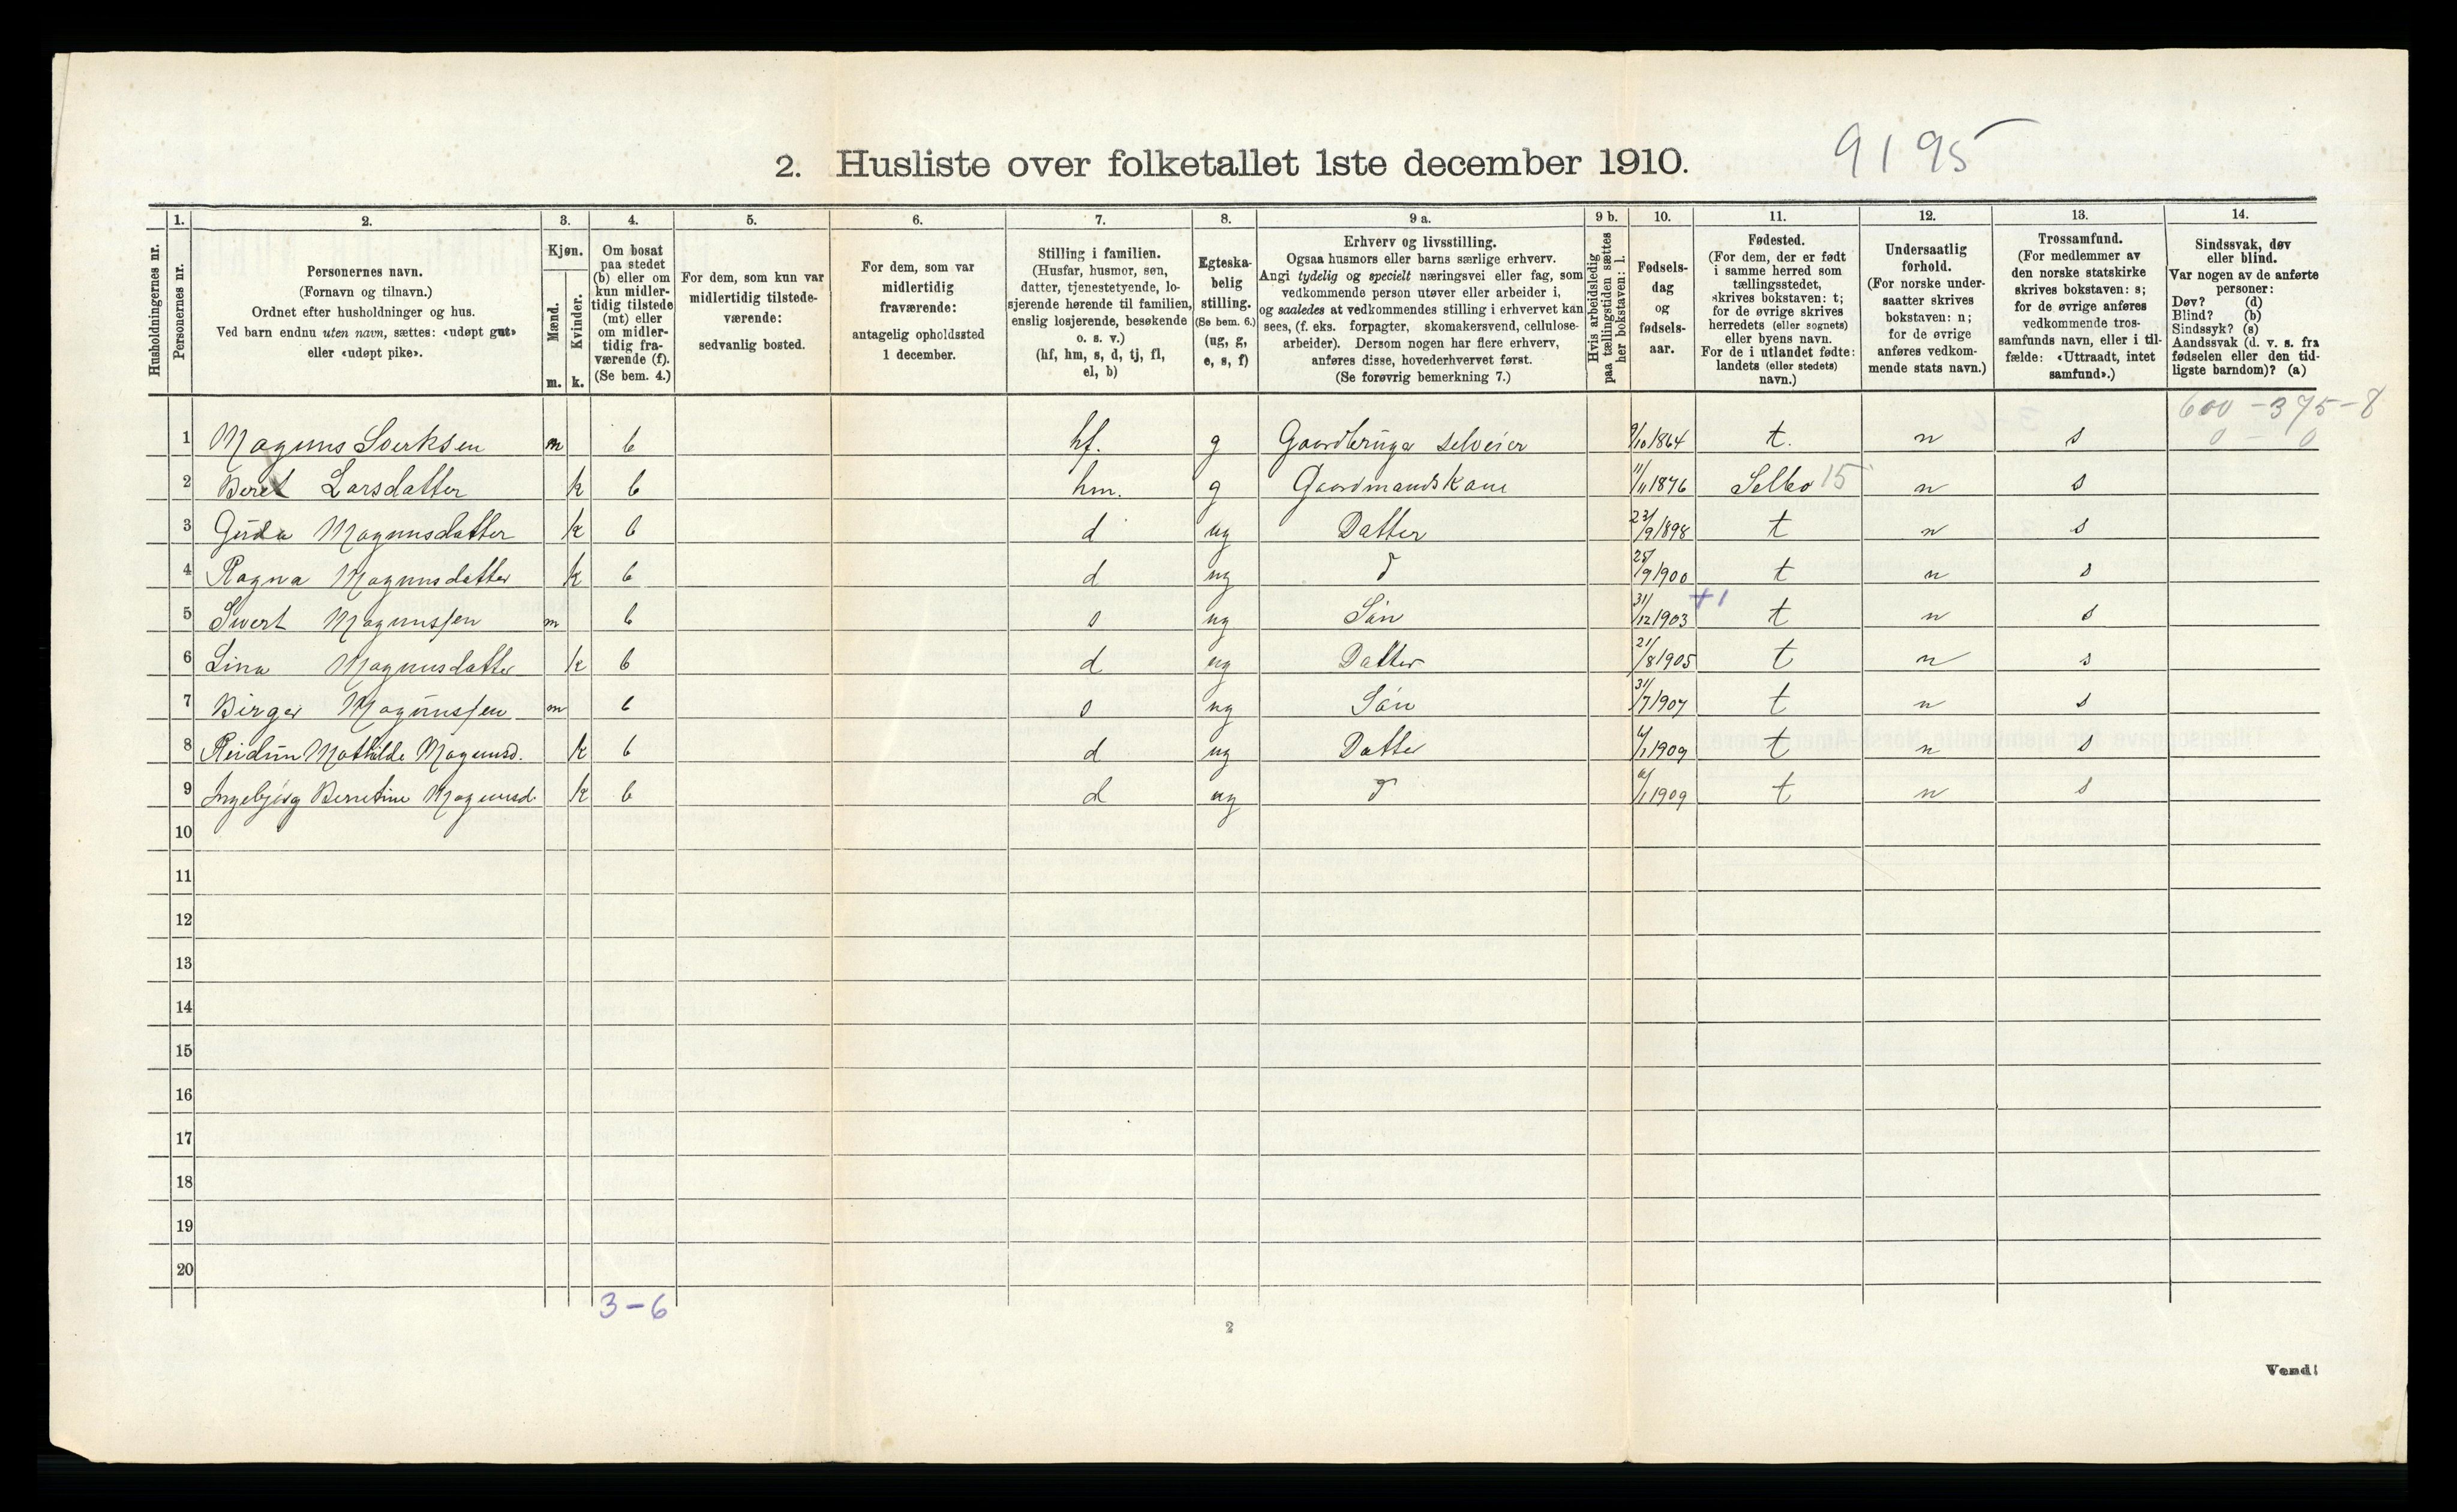 2. Husliste over folketallet 1ste december 1910.
9195
1. 2. 3. 4. 5. 6. 7. 8. 9 a. 9 b. 10. 11. 12. 13. 14.
Husholdningernes nr.
Personernes nr.
Personernes navn.
(Fornavn og tilnavn.)
Ordnet efter husholdninger og hus.
Ved barn endnu uten navn, sættes: «udøpt gut»
eller «udøpt pike».
Kjøn.
Mænd.
Kvinder.
m. k.
Om bosat
paa stedet
(b) eller om
kun midler-
tidig tilstede
(mt) eller
om midler-
tidig fra-
værende (f).
(Se bem. 4.)
For dem, som kun var
midlertidig tilstede-
værende:
sedvanlig bosted.
For dem, som var
midlertidig
fraværende:
antagelig opholdssted
1 december.
Stilling i familien.
(Husfar, husmor, søn,
datter, tjenestetyende, lo-
sjerende hørende til familien,
enslig losjerende, besøkende
o. s. v.)
(hf, hm, s, d, tj, fl,
el, b)
Egteska-
belig
stilling.
(Se bem. 6.)
(ug, g,
e, s, f)
Erhverv og livsstilling.
Ogsaa husmors eller barns særlige erhverv.
Angi tydelig og specielt næringsvei eller fag, som
vedkommende person utøver eller arbeider i,
og saaledes at vedkommendes stilling i erhvervet kan
sees, (f. eks. forpagter, skomakersvend, cellulose-
arbeider). Dersom nogen har flere erhverv,
anføres disse, hovederhvervet først.
(Se forøvrig bemerkning 7.)
Hvis arbeidsledig
paa tællingstiden sættes
her bokstaven: l.
Fødsels-
dag
og
fødsels-
aar.
Fødested.
(For dem, der er født
i samme herred som
tællingsstedet,
skrives bokstaven: t;
for de øvrige skrives
herredets (eller sognets)
eller byens navn.
For de i utlandet fødte:
landets (eller stedets)
navn.)
Undersaatlig
forhold.
(For norske under-
saatter skrives
bokstaven: n;
for de øvrige
anføres vedkom-
mende stats navn.)
Trossamfund.
(For medlemmer av
den norske statskirke
skrives bokstaven: s;
for de øvrige anføres
vedkommende tros-
samfunds navn, eller i til-
fælde: «Uttraadt, intet
samfund».)
Sindssvak, døv
eller blind.
Var nogen av de anførte
personer:
Døv? (d)
Blind? (b)
Sindssyk? (s)
Aandssvak (d. v. s. fra
fødselen eller den tid-
ligste barndom)? (a)
600 - 375 - 8
0 - 0
1 Magnus Sverksen m b hf. g Gaardbruger selveier 9/10 1864 t. n s
2 Beret Larsdatter k b hm. g Gaardmandskone 11/11 1876 Selbo 15 n s
3 Guda Magnusdatter k b d ug Datter 23/9 1898 t n s
4 Ragna Magnusdatter k b d ug d 25/9 1900 t n s
+1
5 Sivert Magnussen m b s ug Søn 31/12 1903 t n s
6 Lina Magnusdatter k b d ug Datter 21/8 1905 t n s
7 Birger Magnussen m b s ug Søn 31/7 1907 t n s
8 Reidun Mathilde Magnusd. k b d ug Datter 6/1 1909 t n s
9 Ingebjørg Berretine Magnusd k b d ug d 6/1 1909 t n s
10
11
12
13
14
15
16
17
18
19
20
3-6
2
Vend!